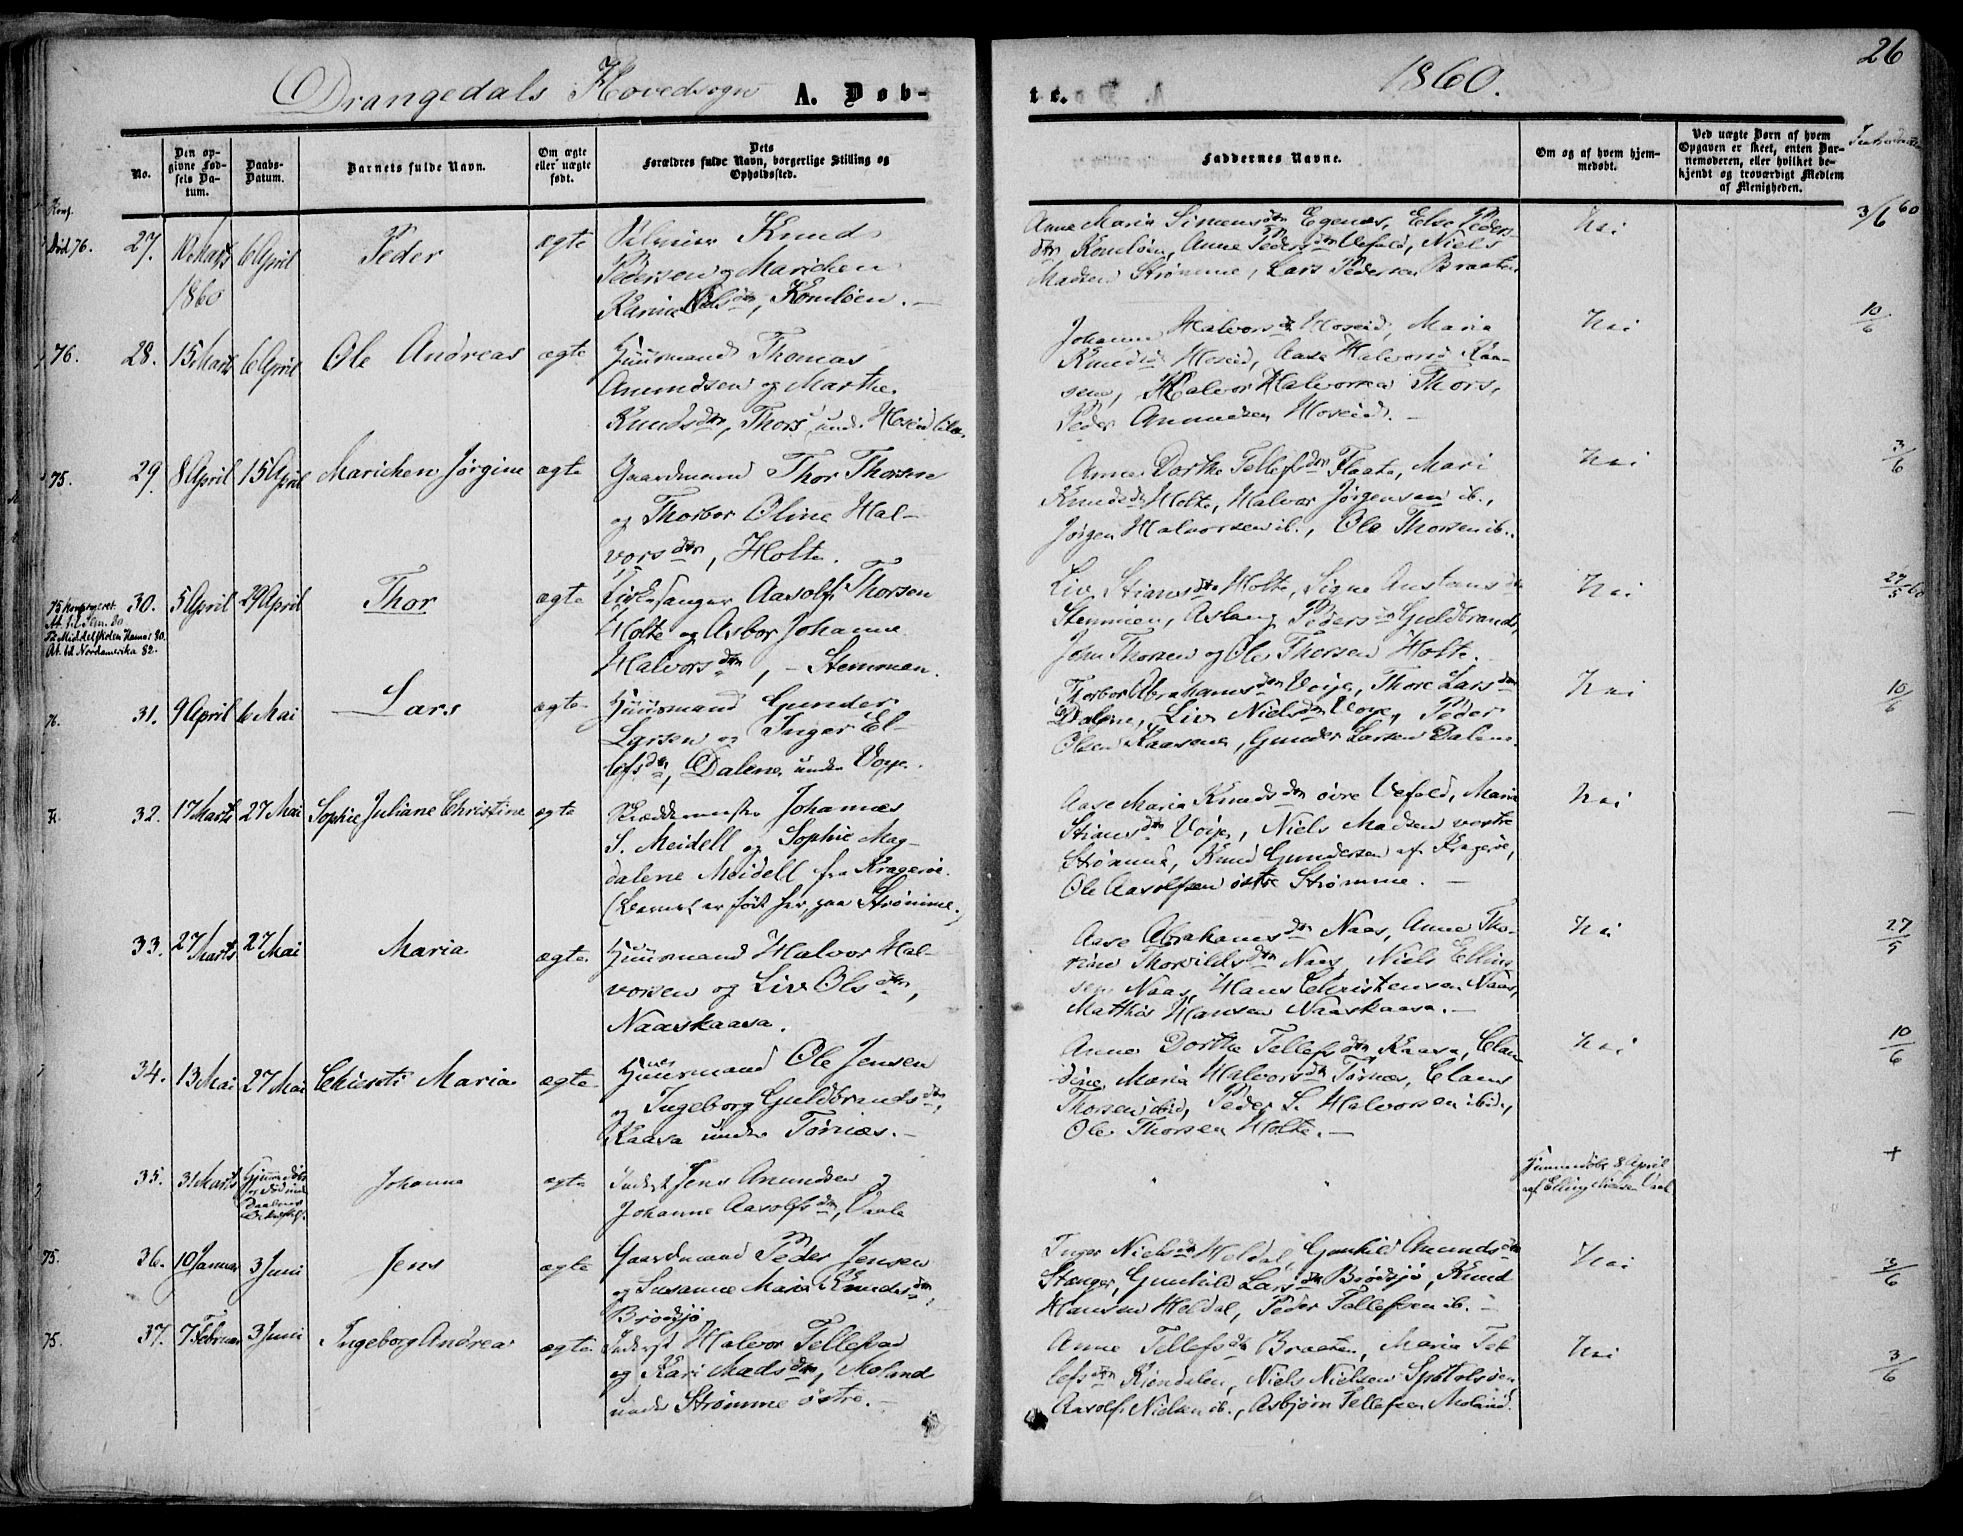 26
Drangedals Hovedsogn A. Døb-
te. 1860.
No.
Den op-
givne Fød-
sels Da-
tum.
Daabs-
Datum.
Barnets fulde Navn.
Om ægte
eller uægte
født.
Dets
Forældres fulde Navn, borgerlige Stilling og
Opholdssted.
Faddernes Navne.
Om og af hvem hjem-
medøbt.
Ved uægte Børn af hvem
Opgaven er skeet, enten Bar-
nemoderen, eller hvilket be-
kjendt og troværdigt Medlem
af Menigheden.
Død 76. 27. 6 April Peder ægte
1860
Knud
Pedersen og Marichen
Karine Nilsdtr, Komløen.
Anne Maria Simensdtr Egenæs, Else Peders-
dtr Komløen, Anne Pedersdtr Vefald, Niels
Madsen Strømme, Lars Pedersen Braaten
Nei 3/6 60
76. 28. 15 Marts 6 April Ole Andreas ægte
Huusmand Thomas
Amundsen og Marthe
Knudsdtr, Thors under Hoseid
Johanne Halvorsdtr Hoseid, Maria
Knudsd Hoseid, Aase Halvorsd Kaa-
sen, Halvor Halvorsen Thors,
Peder Amundsen Hoseid.
Nei 10/6
75. 29. 8 April 15 April Marichen Jørgine ægte
Gaardmand Thor Thorsen
og Thorbor Oline Hal-
vorsdtr, Holte.
Anne Dorthe Tellefsdtr Flaate, Mari
Knudsdtr Holte, Halvor Jørgensen ib.,
Jørgen Halvorsen ib., Ole Thorsen ib.
Nei 3/6
75 konfirmeret.
Til Middelskolen Hamar 80.
At. til Nordamerika 82.
30. 5 April 29 April Thor ægte
Kirkesanger Aasolf Thorsen
Holte og Asbor Johanne
Halvorsdtr, - Stemmen.
Liv Stiansdtr Holte, Signe Austensdtr
Stemmen, Aslaug Pedersd Guldbrands,
John Thorsen og Ole Thorsen Holte.
Nei 27/5 60
31. 9 April 6 Mai Lars ægte
Huusmand Gunder
Larsen og Inger El-
lefsdtr, Dalene under Voje.
Thorbor Abrahamsdtr Voje, Thore Larsdtr
Dalen, Liv Nielsdtr Voje, Peder
Olsen Kaasene, Gunder Larsen Dalene.
Nei 10/6
32. 17 Marts 27 Mai Sophie Juliane Christine ægte
Skræddermester Johannes
S. Meidell og Sophie Mag-
dalene Meidell fra Kragerøe.
(Barnet er født her paa Strømme.)
Aase Maria Knudsdtr øvre Vefald, Maria
Stiansdtr Voje, Niels Madsen vestre
Strømme, Knud Gundersen af Kragerøe,
Ole Aasolfsen østre Strømme.
Nei -
33. 27 Marts 27 Mai Maria ægte
Huusmand Halvor Hal-
vorsen og Liv Olsdtr,
Naaskaasa.
Aase Abrahamsdtr Naas, Anne Tho-
rine Thorvildsdtr Naas, Niels Elling-
sen Naas, Hans Christensen Naas,
Mathis Hansen Naaskaasa.
Nei 27/5
34. 13 Mai 27 Mai Maria ægte
Huusmand Ole Jensen
og Ingeborg Guldbrandsdtr,
Kaasa under Tørnæs.
Anne Dorthe Tellefsdtr Kaasa, Clau-
dine Maria Halvorsdtr Tørnæs, Claus
Thorsen ibid, Peder S. Halvorsen ibid,
Ole Thorsen Holte.
Nei 10/6
35. 31 Marts Johanne ægte
Inderst Jens Amundsen og
Johanne Aasolfsdtr, Vaale
Hjemmedøbt 8 April
af Elling Nielsen
+
75. 36. 10 Januar 3 Juni Jens ægte
Gaardmand Peder Jensen
og Susanne Maria Knudsdtr,
Brødsjø
Inger Nielsdtr Heldal, Gunhild Amundsdtr
Stanger, Gunhild Larsdtr Brødsjø, Knud
Hansen Heldal, Peder Tellefsen ib.
Nei 3/6
75. 37. 7 Februar 3 Juni Ingeborg Andrea ægte
Inderst Halvor Tellefsen
og Kari Madsdtr, Moland
under Strømme østre.
Anne Tellefsdtr Braaten, Maria Tel-
lefsdtr Kjendalen, Niels Nielsen
Aasolf Nielsen ib., Asbjørn Tellefsen Moland.
Nei 3/6